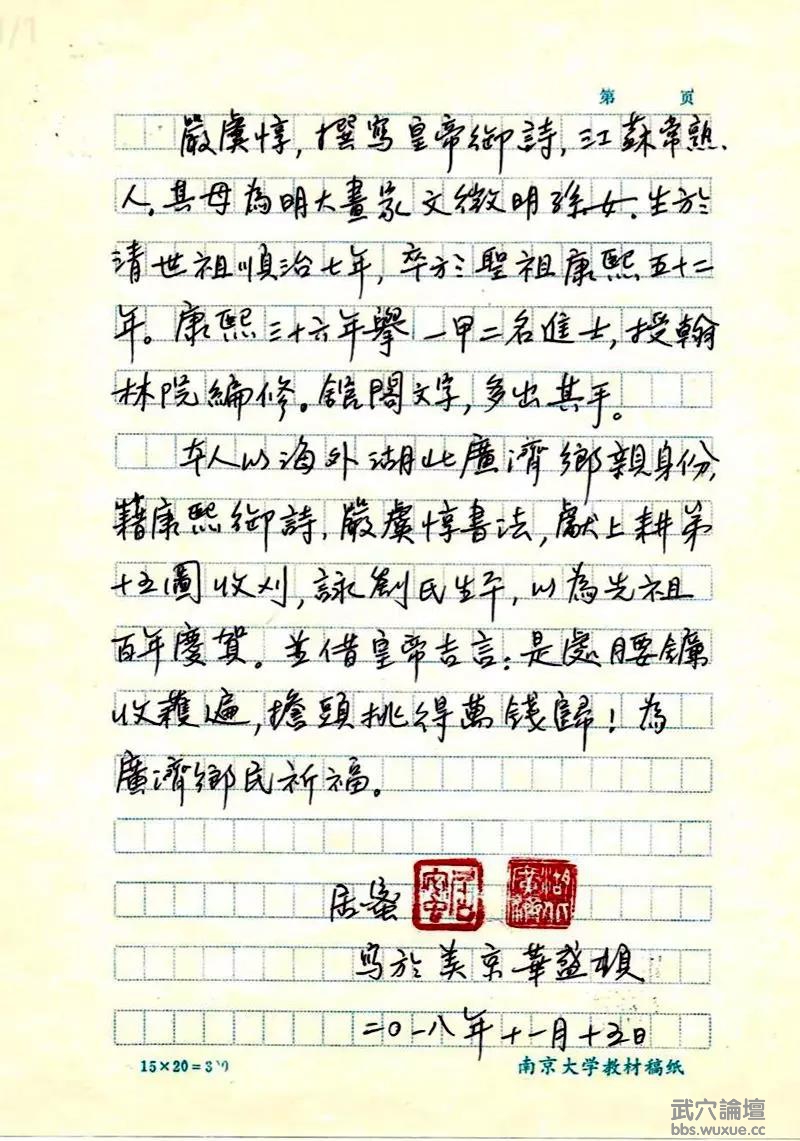 第 页
嚴虞惇，撰寫皇帝御詩，江蘇常熟
人。其母為明大畫家文徵明孫女。生於
清世祖順治七年，卒於聖祖康熙五十二
年。康熙三十六年舉一甲二名進士，授翰
林院編修。館閣文字，多出其手。
本人以海外湖北廣濟鄉親身份，
藉康熙御詩，嚴虞惇書法，獻上耕第
十五圖收刈，詠創民生平，以為先祖
百年慶賀。並借皇帝吉言：是處腰鐮
收穫遍，擔頭挑得萬錢歸！為
廣濟鄉民祈福。
居蜜
居蜜
湖北廣濟
寫於美京華盛頓
二〇一八年十一月十五日
15×20=300
南京大学教材稿纸
武穴論壇
bbs.wuxue.cc